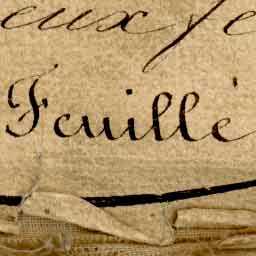 eux fe
Feuillé